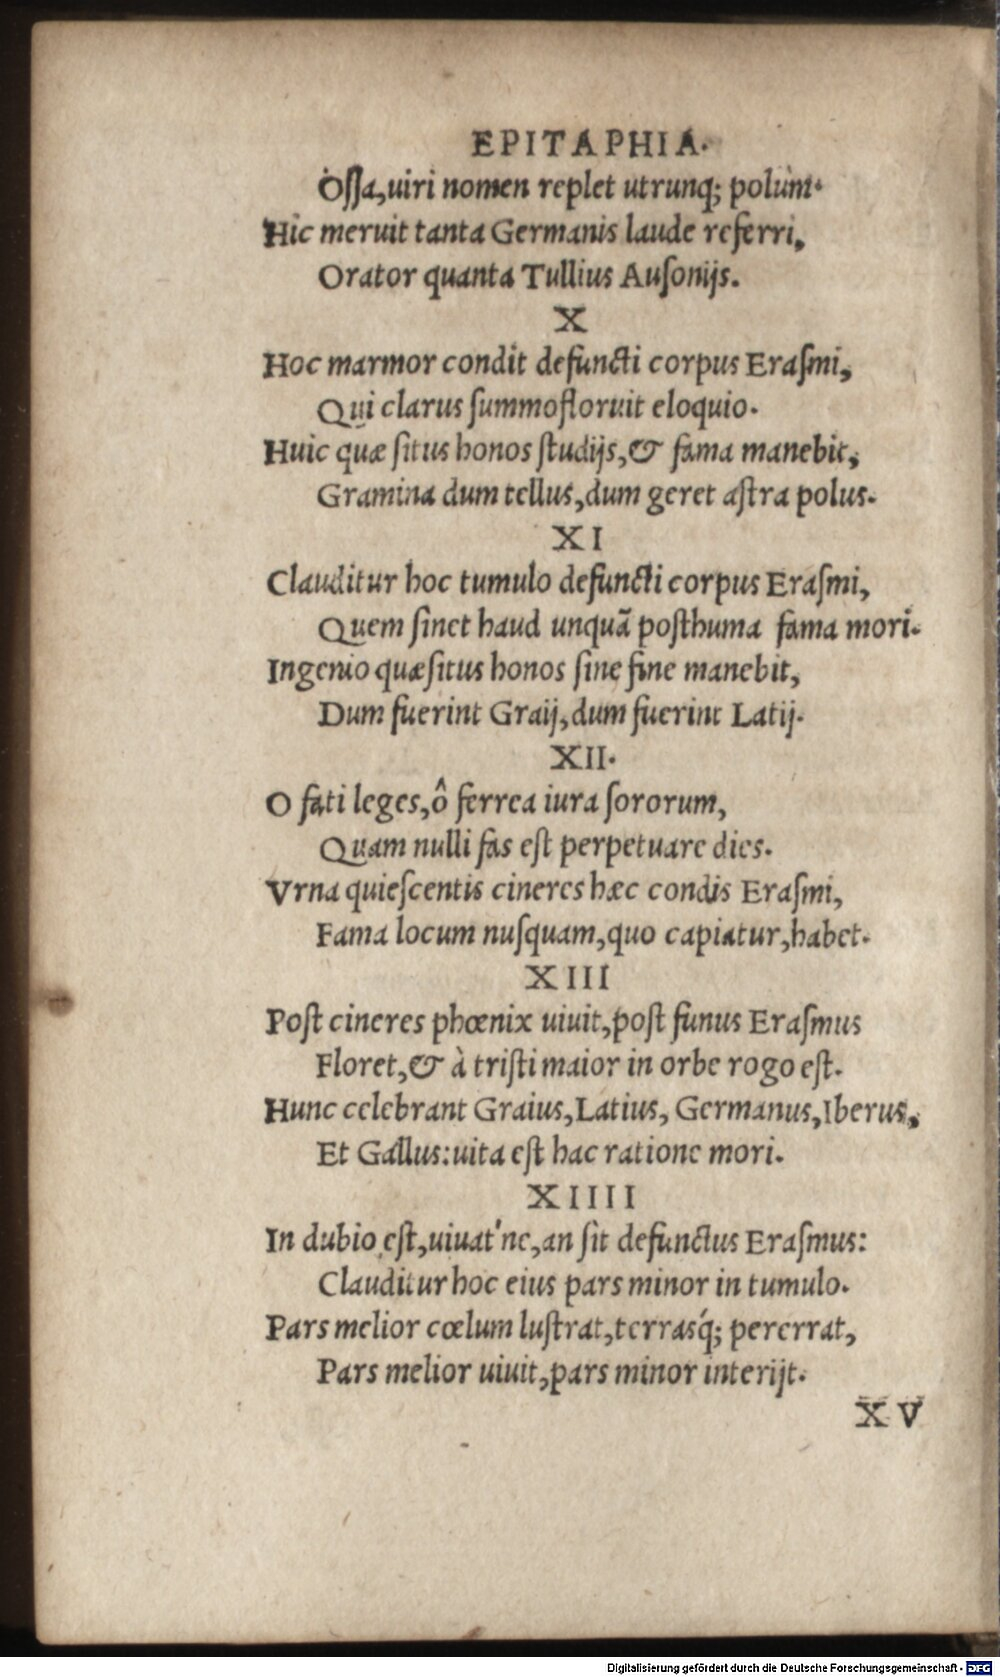 EPITAPHIA.
Oſſa, uiri nomen replet utrunq; polum.
Hic meruit tanta Germanis laude referri,
Orator quanta Tullius Auſonijs.
X
Hoc marmor condit defuncti corpus Eraſmi,
Qui clarus ſummo floruit eloquio.
Huic quæ ſitus honos ſtudijs, & fama manebit,
Gramina dum tellus, dum geret aſtra polus.
XI
Clauditur hoc tumulo defuncti corpus Eraſmi,
Quem ſinet haud unquā poſthuma fama mori.
Ingenio quæſitus honos ſine fine manebit,
Dum fuerint Graij, dum fuerint Latij.
XII.
O fati leges, ô ferrea iura ſororum,
Quam nulli fas eſt perpetuare dies.
Vrna quieſcentis cineres hæc condis Eraſmi,
Fama locum nuſquam, quo capiatur, habet.
XIII
Poſt cineres phœnix uiuit, poſt funus Eraſmus
Floret, & à triſti maior in orbe rogo eſt.
Hunc celebrant Graius, Latius, Germanus, Iberus,
Et Gallus: uita eſt hac ratione mori.
XIIII
In dubio eſt, uiuat'ne, an ſit defunctus Eraſmus:
Clauditur hoc eius pars minor in tumulo.
Pars melior cœlum luſtrat, terrasq́; pererrat,
Pars melior uiuit, pars minor interijt.
XV
Digitalisierung gefördert durch die Deutsche Forschungsgemeinschaft - DFG